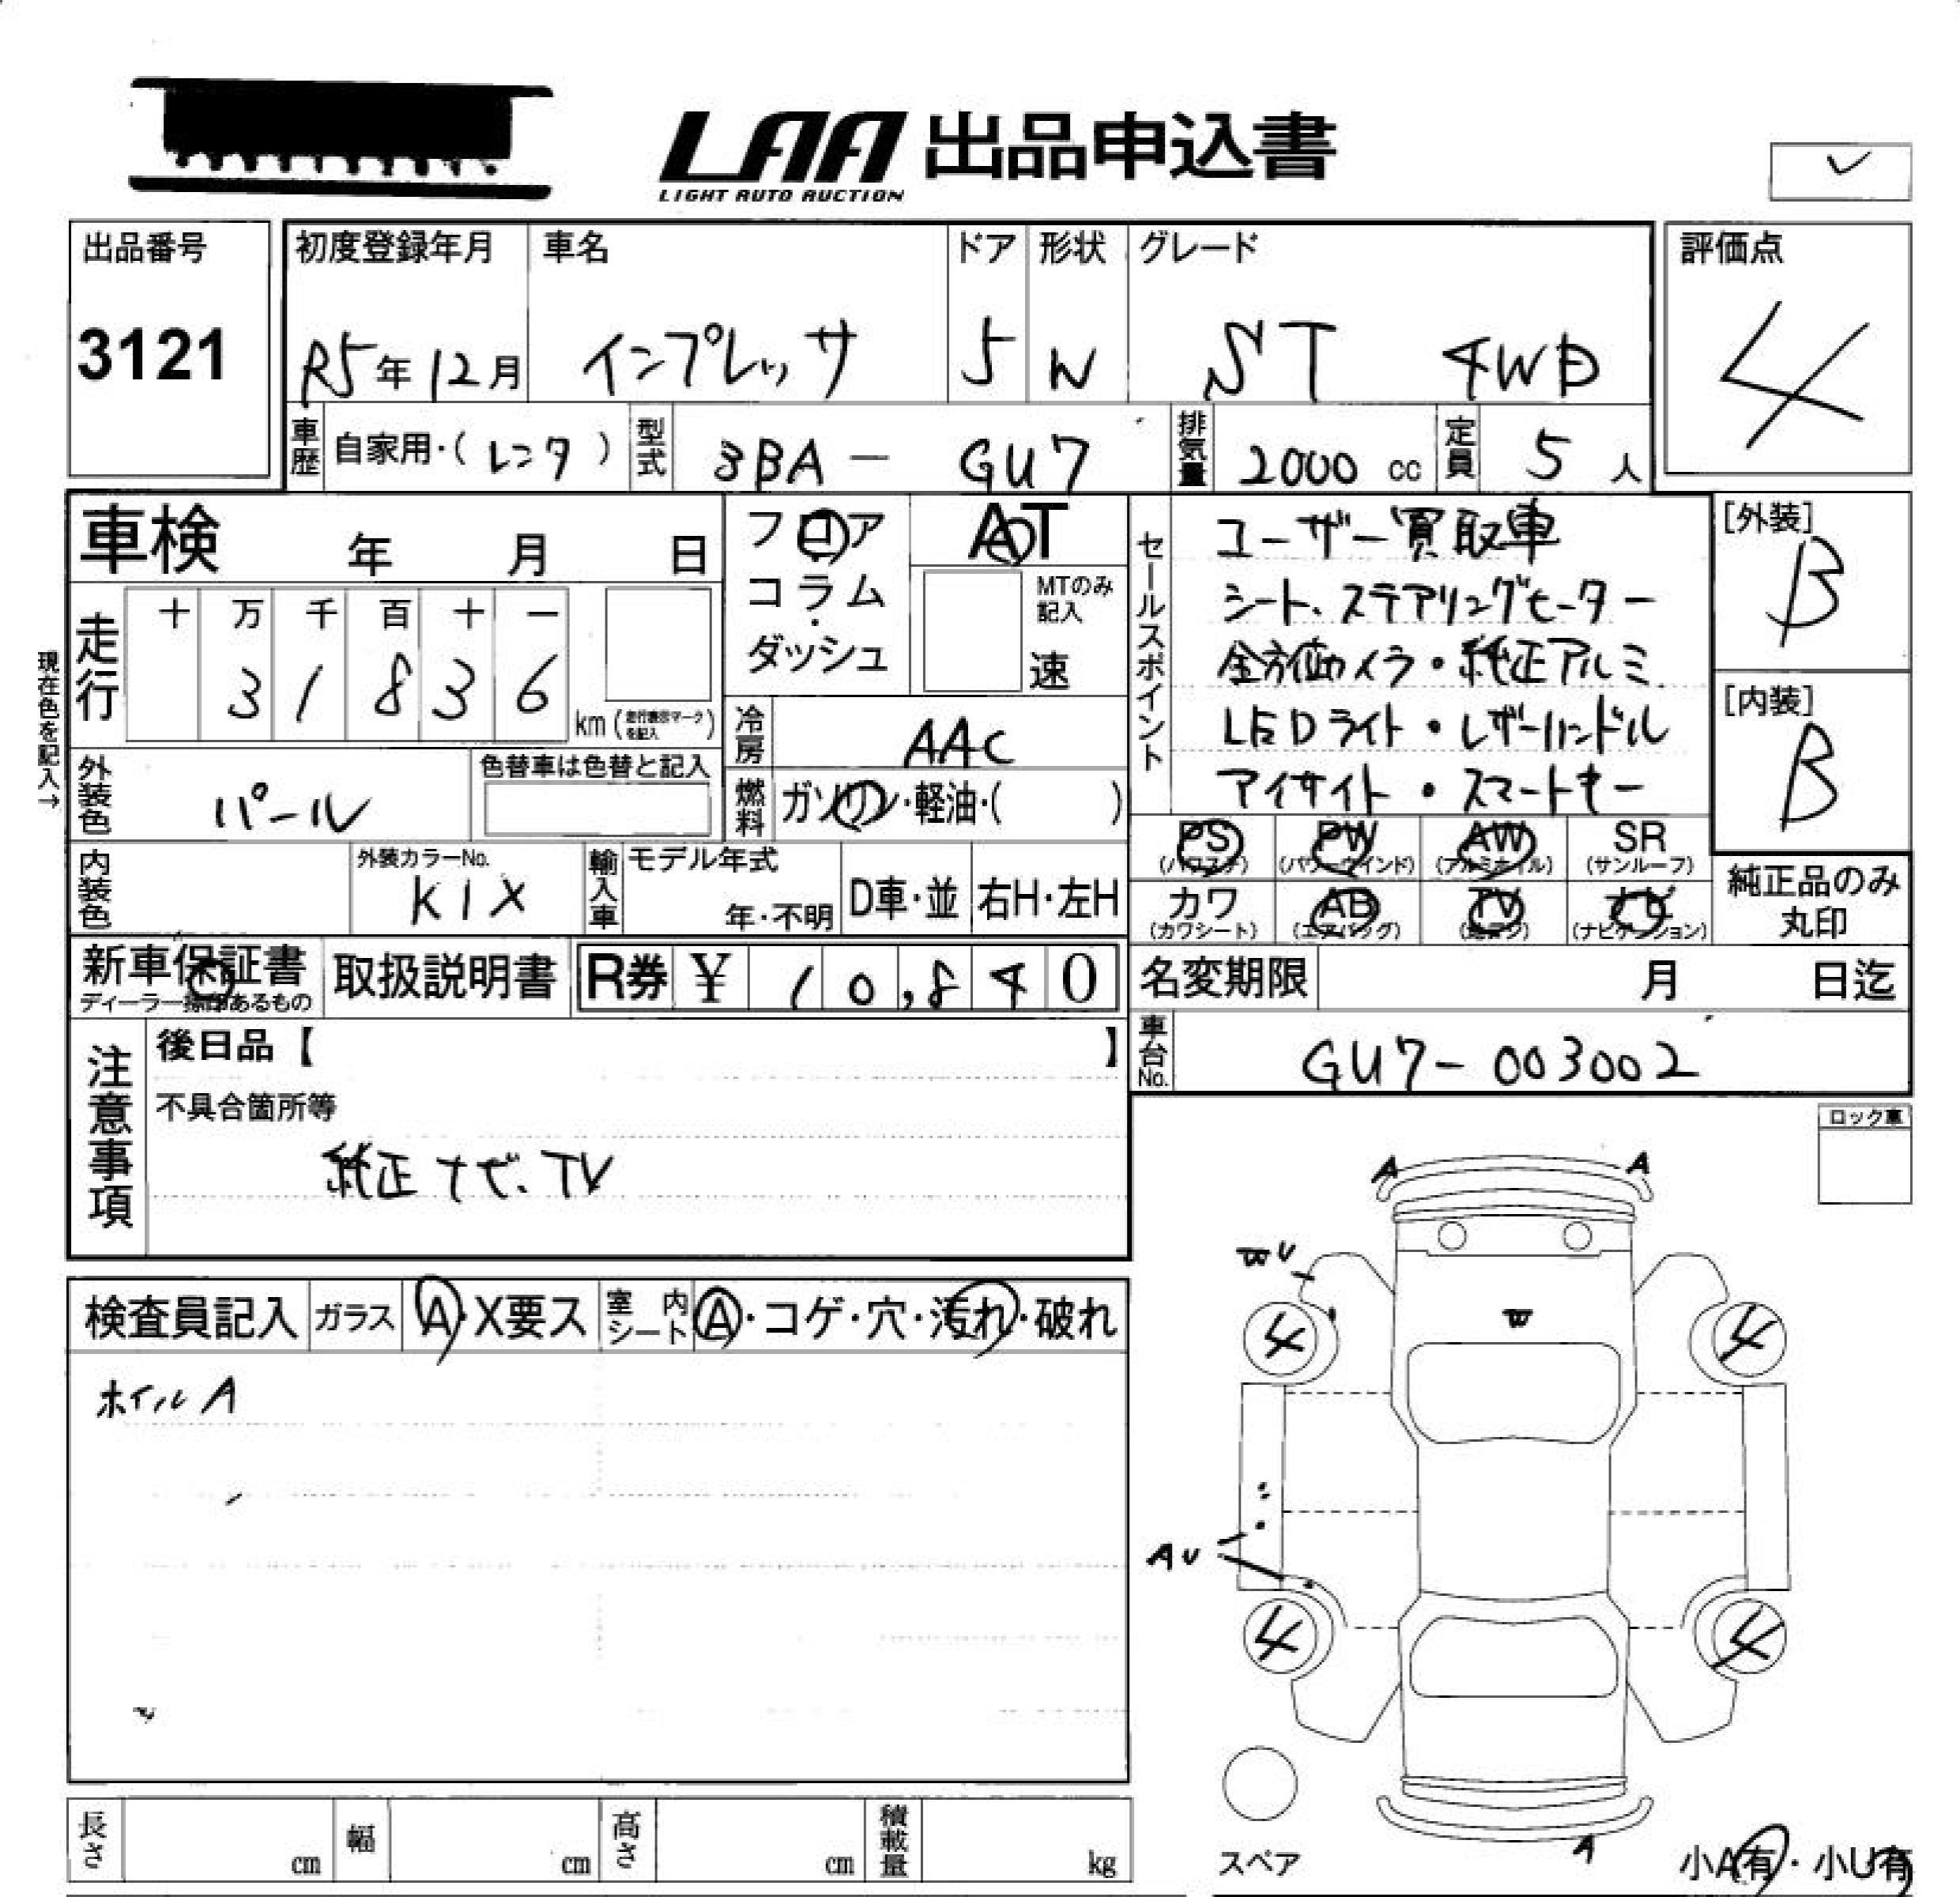 LAA 出品申込書
LIGHT AUTO AUCTION
出品番号
3121
初度登録年月
R5年12月
車名
インプレッサ
ドア
5
形状
W
グレード
ST 4WD
評価点
4
車歴
自家用・(レンタ)
型式
3BA - GU7
排気量
2000 cc
定員
5人
車検 年 月 日
フロア
コラム
・
ダッシュ
AT
MTのみ
記入
速
走行
十 万 千 百 十 一
3 1 8 3 6
km(走行表示マークを記入)
現在色を記入→
冷房
AAC
外装色
パール
色替車は色替と記入
燃料
ガソリン・軽油・( )
内装色
外装カラーNo.
K1X
輸入車
モデル年式
年・不明
D車・並
右H・左H
セールスポイント
ユーザー買取車
シート、ステアリングヒーター
全方位カメラ・純正アルミ
LEDライト・レザーハンドル
アイサイト・スマートキー
[外装]
B
[内装]
B
PS
(パワステ)
PW
(パワーウインド)
AW
(アルミホイル)
SR
(サンルーフ)
カワ
(カワシート)
AB
(エアバッグ)
TV
ナビ
(ナビゲーション)
純正品のみ
丸印
新車保証書
ディーラー捺印あるもの
取扱説明書
R券 ¥ 10,840
名変期限 月 日迄
車台No.
GU7-003002
注意事項
後日品【 】
不具合箇所等
純正ナビ、TV
ロック車
検査員記入
ガラス
A・X要ス
室内シート
A・コゲ・穴・汚れ・破れ
ホイルA
A
A
WU
W
4
4
AU
4
4
A
スペア
小A有・小U有
長さ cm
幅 cm
高さ cm
積載量 kg